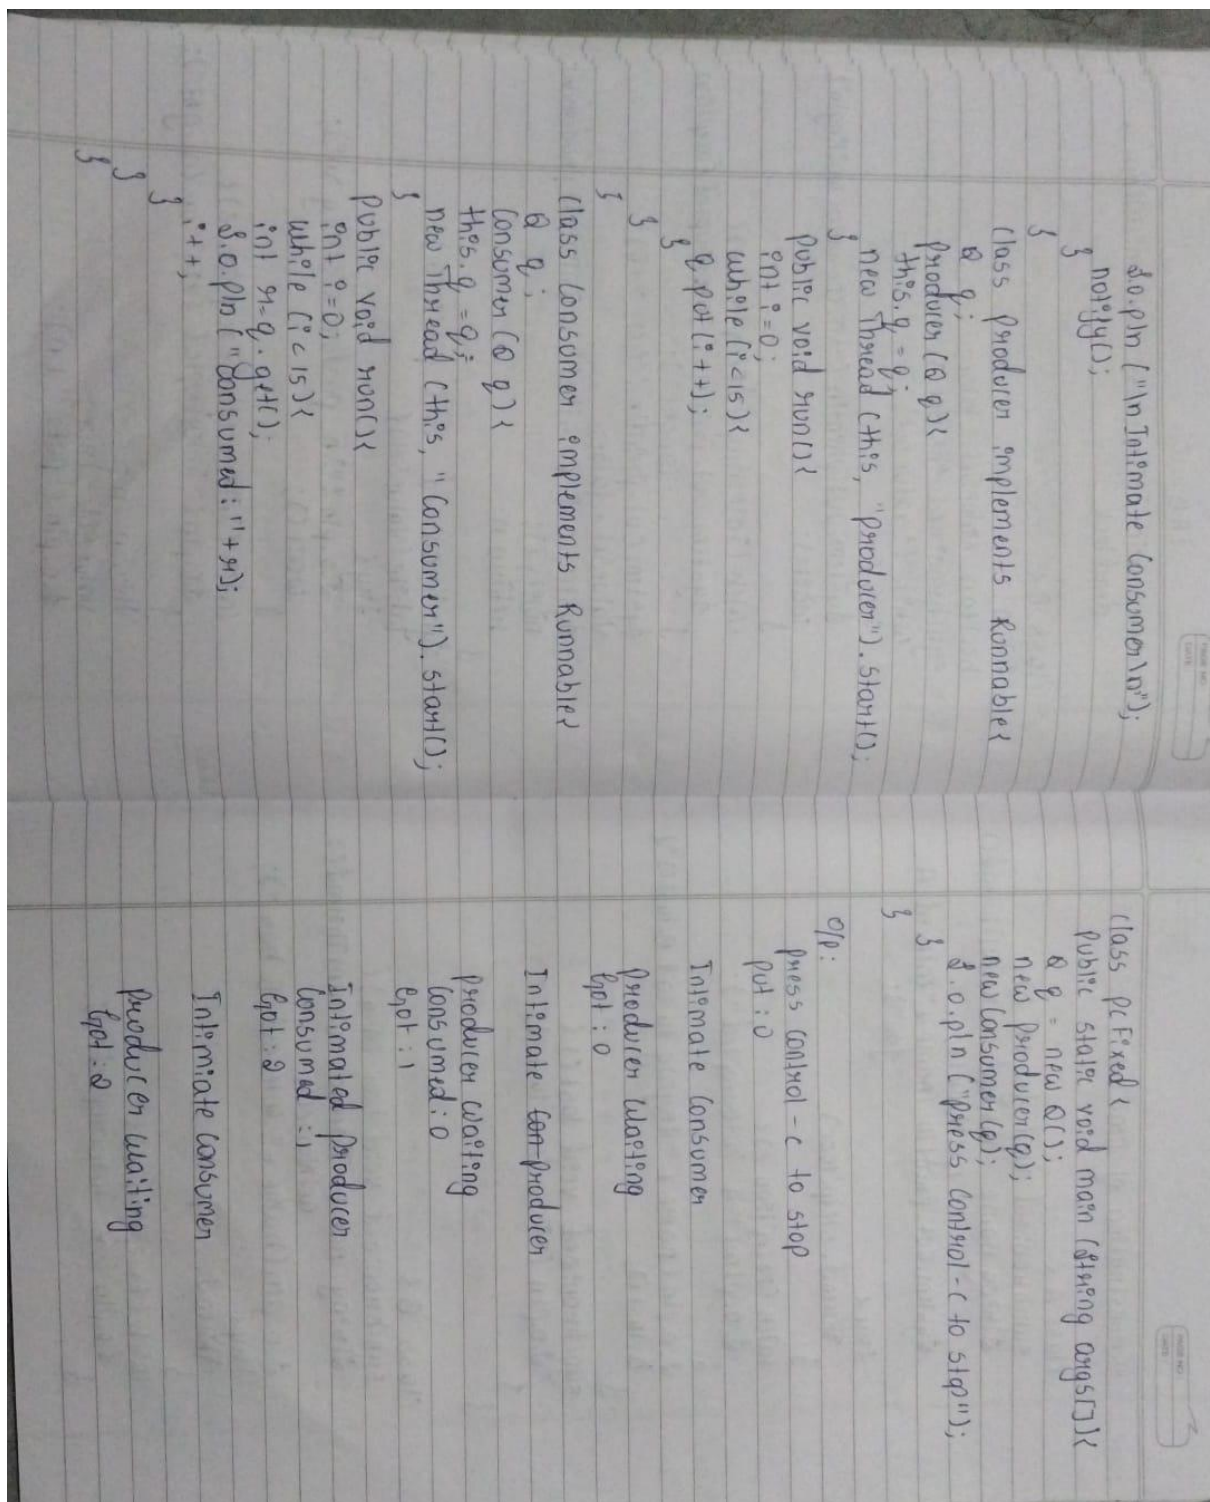 S.o.pln ("\n Intimate Consumer \n");
notify();
}
}
class producer implements Runnable{
Q q;
producer (Q q){
this.q = q;
new Thread (this, "producer"). start();
}
public void run(){
int i=0;
while (i<15){
q.put(i++);
}
}
}
class Consumer implements Runnable{
Q q;
Consumer (Q q){
this.q = q;
new Thread (this, "Consumer"). start();
}
public void run(){
int i=0;
while (i<15){
int r=q.get();
S.o.pln ("Consumed:"+r);
i++;
}
}
}
PAGE NO:
DATE:
class pcFixed{
public static void main (String args[]){
Q q = new Q();
new producer(q);
new Consumer(q);
S.o.pln ("press control-c to stop");
}
}
o/p:
press control-c to stop
put : 0
Intimate Consumer
producer waiting
Got : 0
Intimate Con producer
producer waiting
Consumed : 0
Got : 1
Intimated producer
Consumed : 1
Got : 2
Intimiate Consumer
producer waiting
Got : 2
PAGE NO:
DATE: